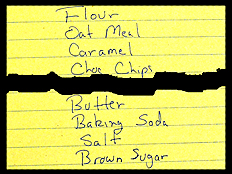 Flour
Oat Meal
Caramel
Choc Chips
Butter
Baking Soda
Salt
Brown Sugar